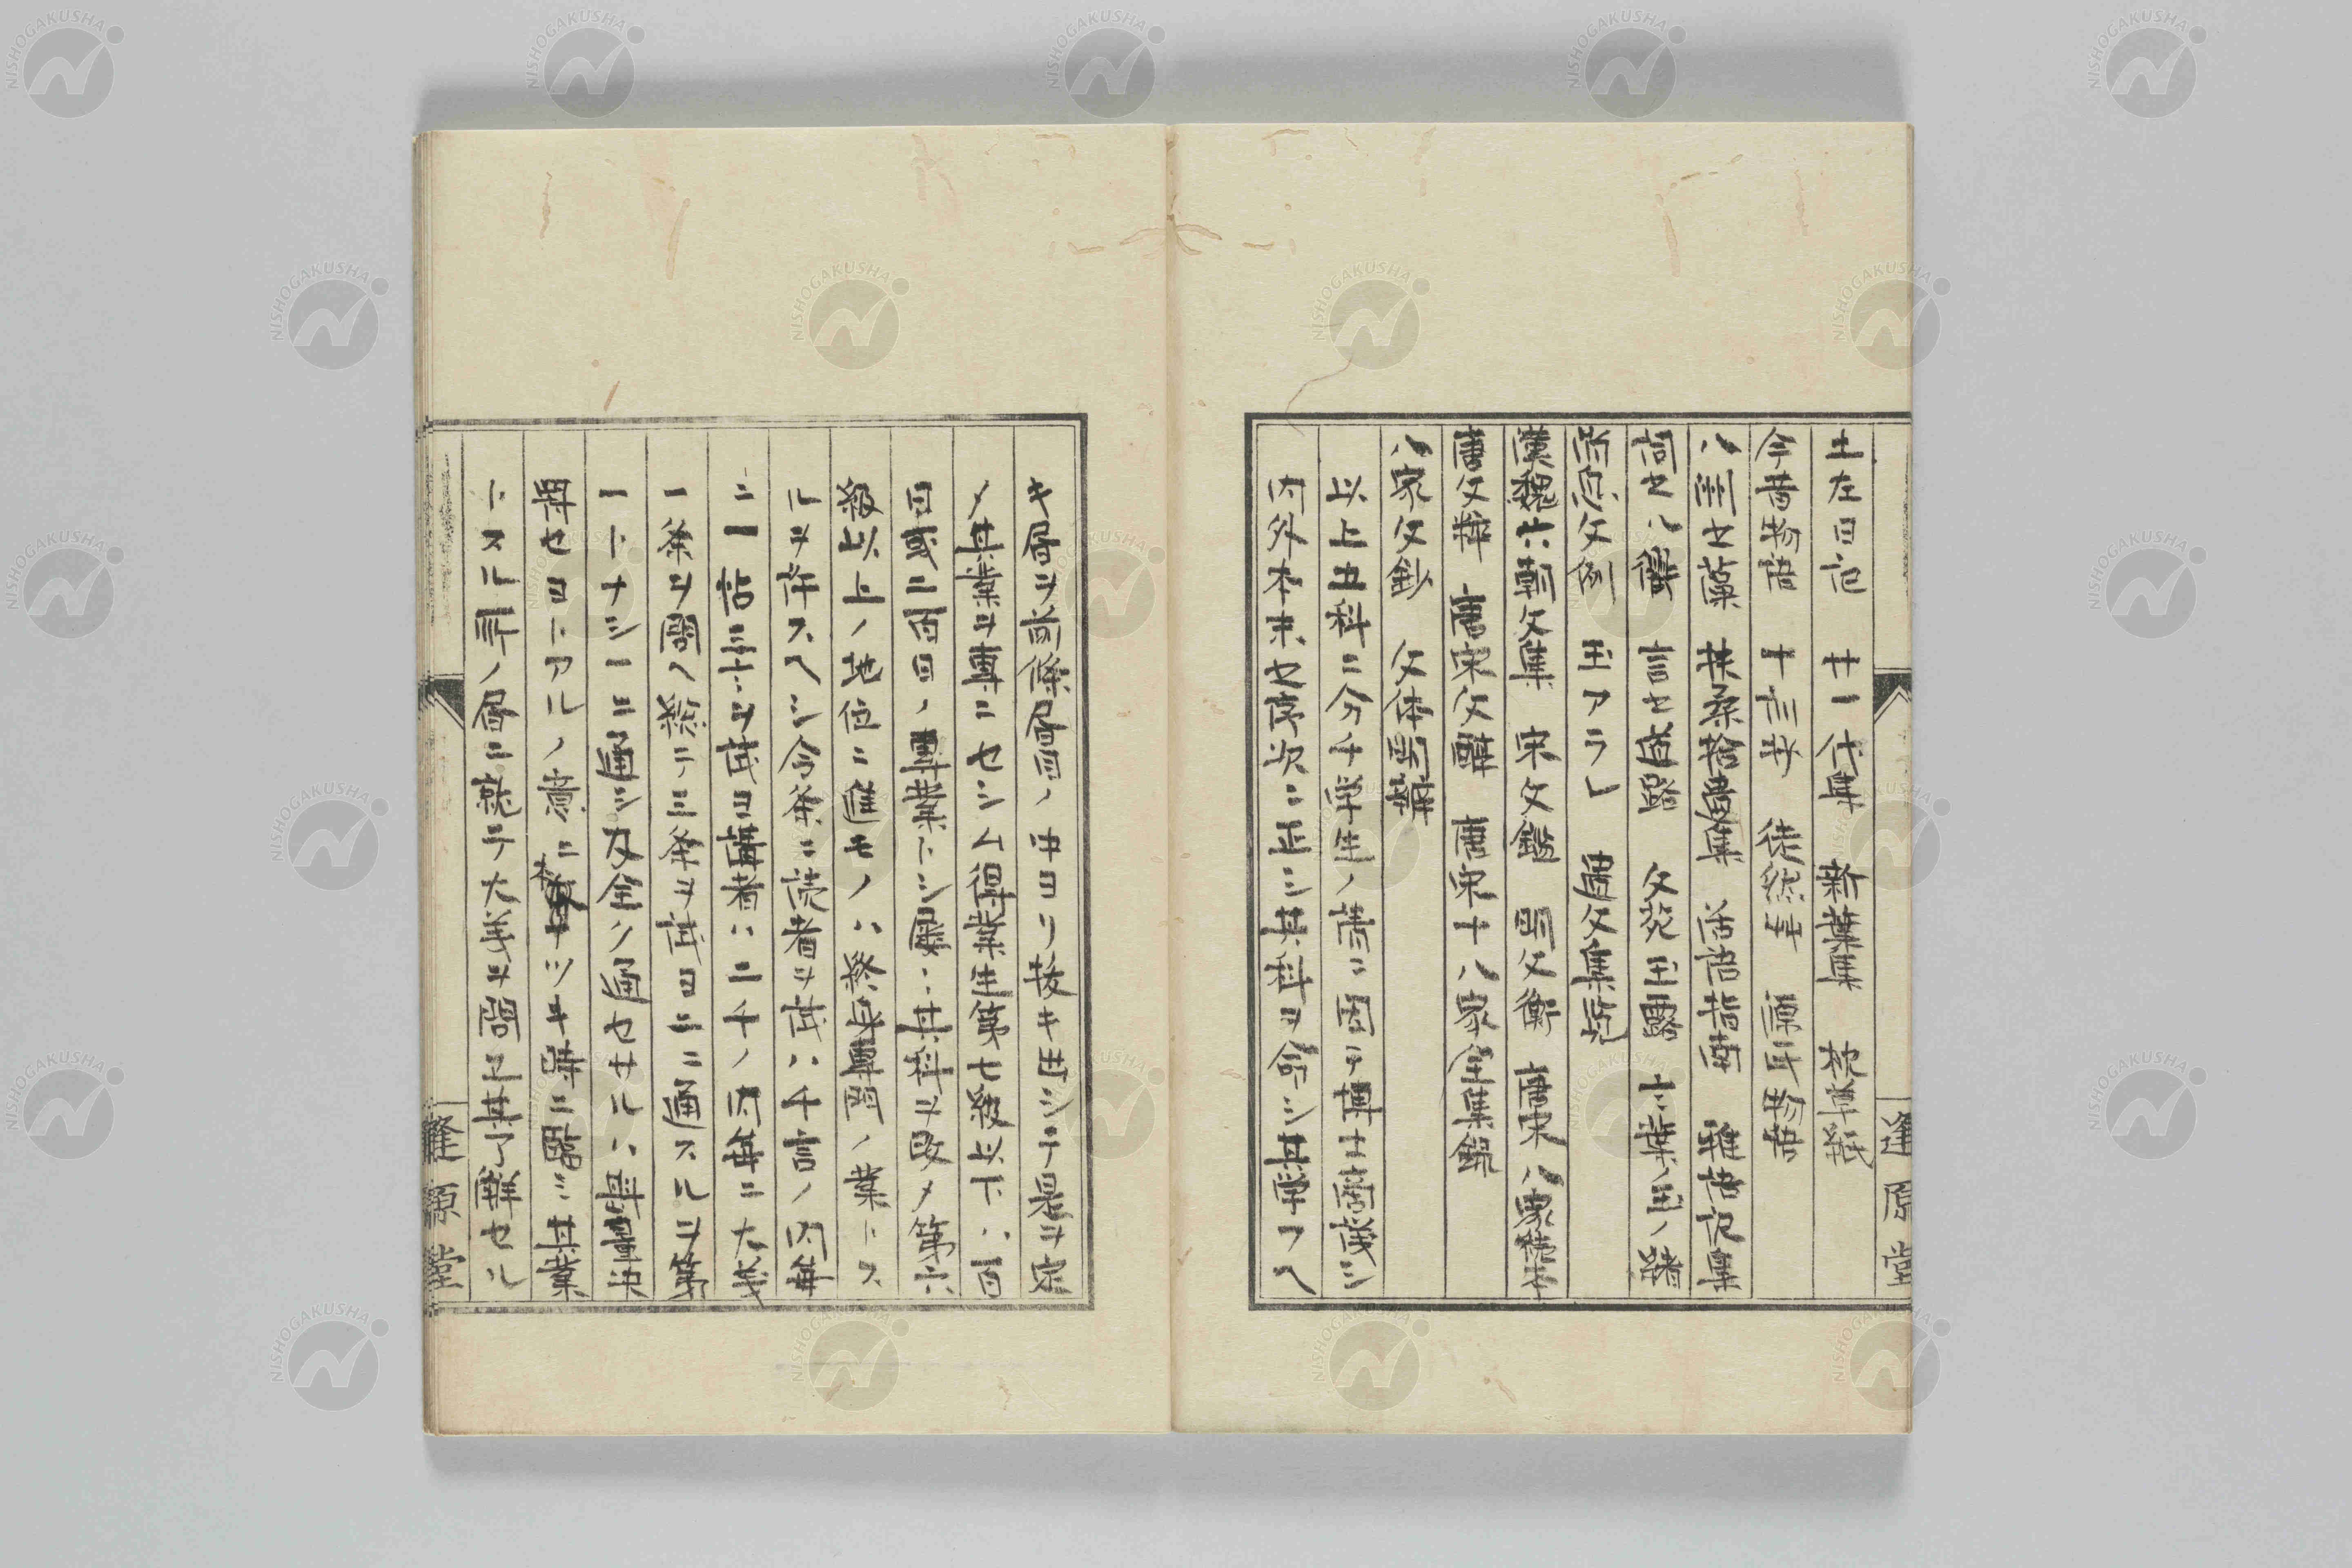 土左日記 廿一代集 新葉集 枕草紙
今昔物語 十訓抄 徒然草 源氏物語
八洲文藻 扶桑拾葉集 活語指南 雅語記集
詞セハ衢 言セ道路 文苑玉露 古葉ノ玉ノ緒
消息文例 玉アラレ 遺文集覧
漢魏六朝文集 宋文鑑 明文衡 唐宋八家読本
唐文粋 唐宋文醇 唐宋十八家全集錄
八家文鈔 文体明辨
以上五科ニ分チ学生ノ蕎ニ因テ博士商議シ
内外本末セ序次ヲ正シ其科ヲ命シ其学フヘ
キ層ヲ前條層目ノ中ヨリ抜キ出シテ是ヲ定
メ其業ヲ專ニセシム得業生第七級以下ハ百
日或二百日ノ專業トシ屢〻其科ヲ改メ第六
級以上ノ地位ニ進モノハ終身專門ノ業トス
ルヲ許スヘシ今条ニ読者ヲ試ハ千言ノ内毎
ニ一帖三言ヲ試ヨ講者ハ二千ノ内毎ニ大義
一条ヲ問ヘ総テ三条ヲ試ヨ二ニ通スルヲ第
一トナシ一ニ通シ及全ク通セサルハ斟量決
罪セヨトアルノ意ニ本ツキ時ニ臨ミ其業
トスル所ノ層ニ就テ大義ヲ問ヒ其了解セル
逢原堂
逢原堂